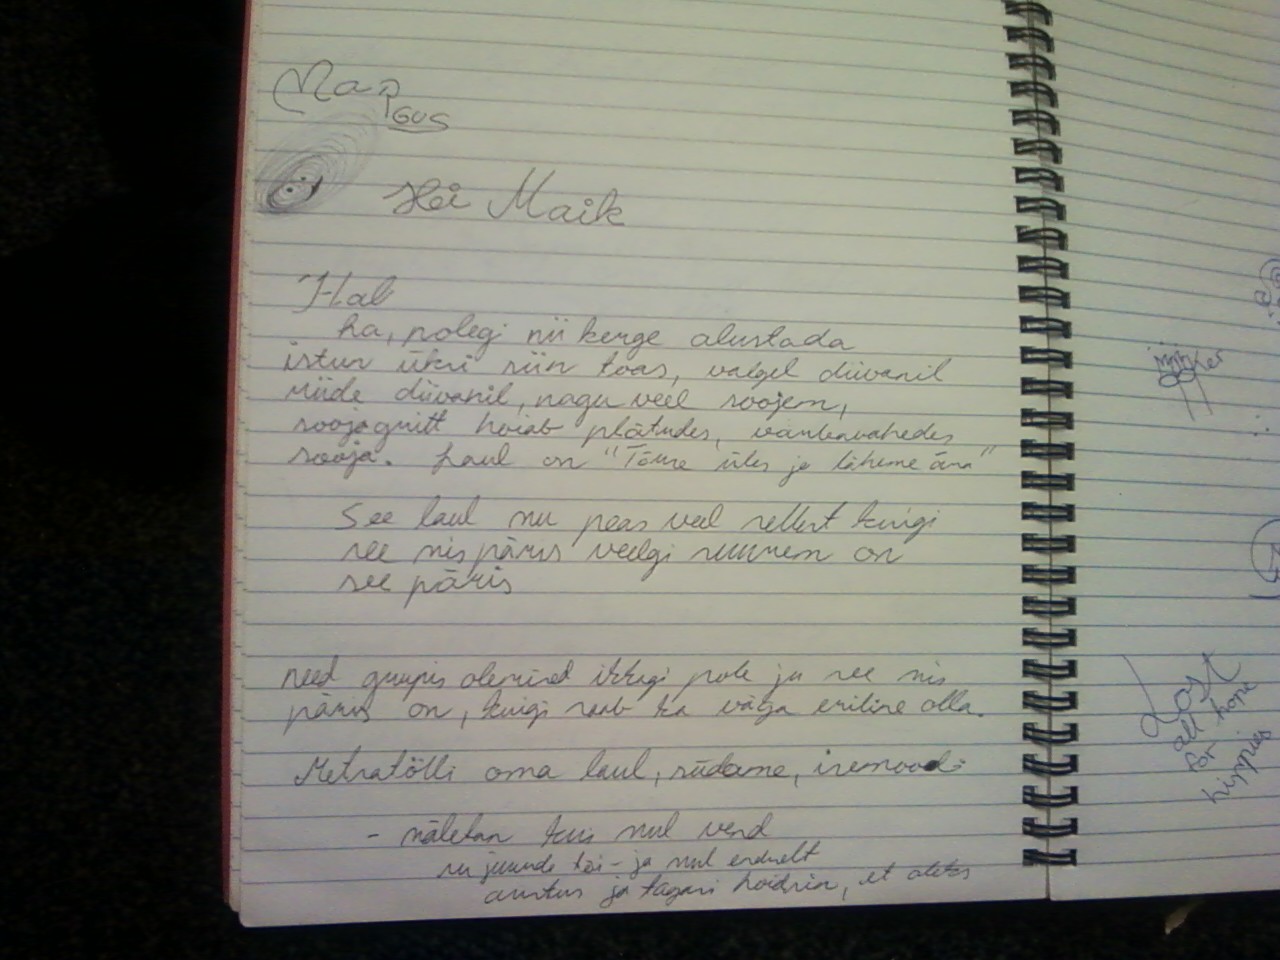 Mar
GUS
Hei Maik
Hal
ha, polegi nii kerge alustada
istun üksi siin toas, valgel diivanil
riide diivanil, nagu veel soojem,
hoiab plätudes, varbavahedes
sooja. Laul on "Tõuse üles ja läheme ära"
See laul mu peas veel sellest kuigi
see mis päris veelgi suurem on
see päris
need grupis olemised ikkagi pole ju see mis
päris on, kuigi saab ka väga eriline olla.
Metsatölli oma laul, südame, isemoodi
- mäletan kuis mul vend
su juurde tõi - ja mul endselt
austus ja tagasi hoidsin, et
Lost
all hope
for
hippies